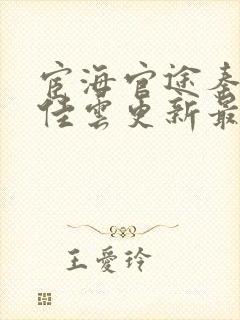 宦海官途秦
佳雲更新最
王愛玲